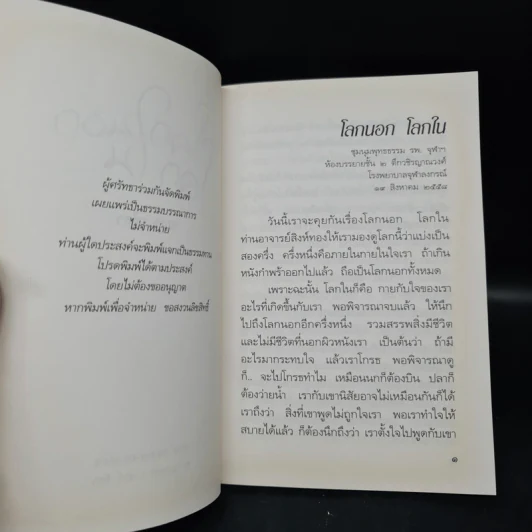 ผู้ศรัทธาร่วมกันจัดพิมพ์
เผยแพร่เป็นธรรมบรรณาการ
ไม่จำหน่าย
ท่านผู้ใดประสงค์จะพิมพ์แจกเป็นธรรมทาน
โปรดพิมพ์ได้ตามประสงค์
โดยไม่ต้องขออนุญาต
หากพิมพ์เพื่อจำหน่าย ขอสงวนลิขสิทธิ์
โลกนอก โลกใน
ชุมนุมพุทธธรรม รพ. จุฬาฯ
ห้องบรรยายชั้น ๒ ตึกวชิรญาณวงศ์
โรงพยาบาลจุฬาลงกรณ์
สิงหาคม
วันนี้เราจะคุยกันเรื่องโลกนอก โลกใน
ท่านอาจารย์สิงห์ทองให้เรามองดูโลกนี้ว่าแบ่งเป็น
สองครึ่ง ครึ่งหนึ่งคือภายในกายในใจเรา ถ้าเกิน
หนังกำพร้าออกไปแล้ว ถือเป็นโลกนอกทั้งหมด
เพราะฉะนั้น โลกในก็คือ กายกับใจของเรา
อะไรที่เกิดขึ้นกับเรา พอพิจารณาจบแล้ว ให้นึก
ไปถึงโลกนอกอีกครึ่งหนึ่ง รวมสรรพสิ่งมีชีวิต
และไม่มีชีวิตที่นอกผิวหนังเรา เป็นต้นว่า ถ้ามี
อะไรมากระทบใจ แล้วเราโกรธ พอพิจารณาดู
ก็.. จะไปโกรธทำไม เหมือนนกก็ต้องบิน ปลาก็
ต้องว่ายน้ำ เรากับเขานิสัยอาจไม่เหมือนกันก็ได้
เราถึงว่า สิ่งที่เขาพูดไม่ถูกใจเรา พอเราทำใจให้
สบายได้แล้ว ก็ต้องนึกถึงว่า เราตั้งใจไปพูดกับเขา
๑